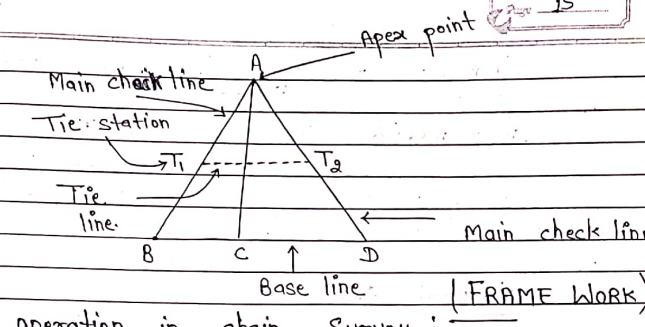 Page 15
Apex point
A
Main check line
Tie station
T1
T2
Tie
line.
Main check lin
B
C
D
Base line.
(FRAME WORK)
operation in chain Survey :